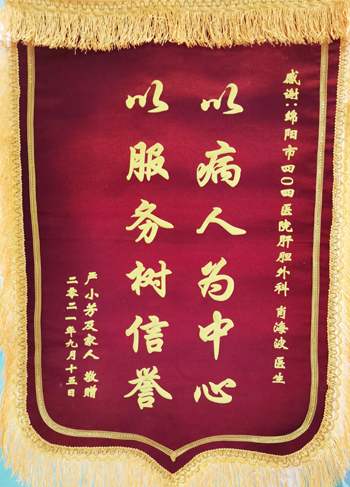 感谢:绵阳市四〇四医院肝胆外科 肖海波 医生
以病人为中心
以服务树信誉
严小芳及家人 敬赠
二零二一年九月十三日